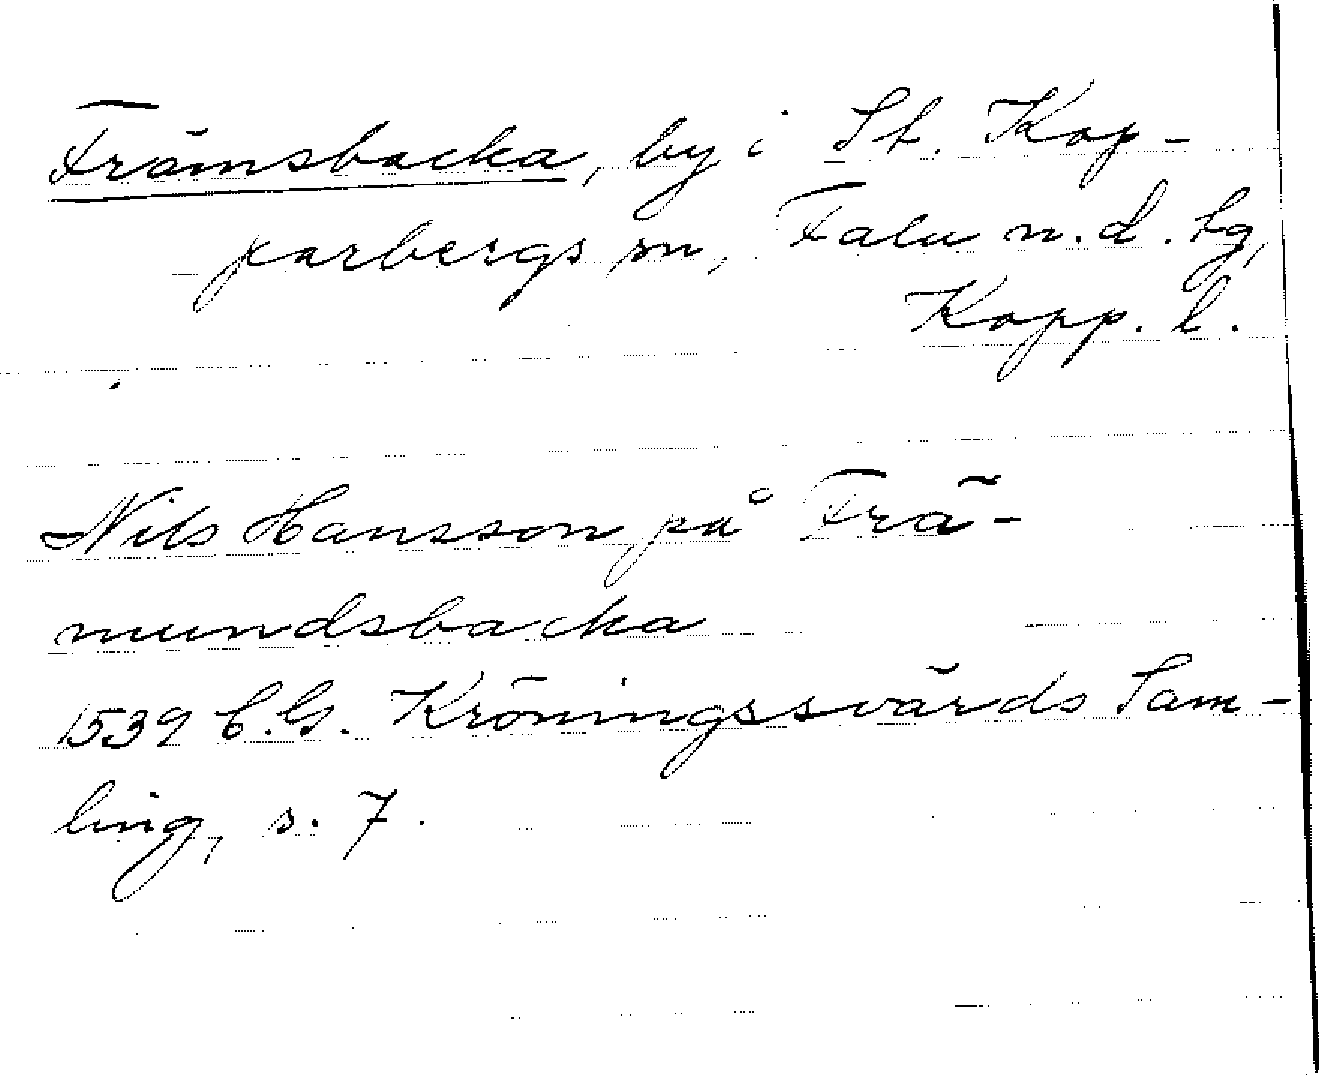 Främsbacka, by i St. Kop-
parbergs sn, Falu n. d. hg,
Kopp. l.
Nils Hansson på Frä-
mundsbacka
1539 C. G. Kröningssvärds Sam-
ling, s. 7.